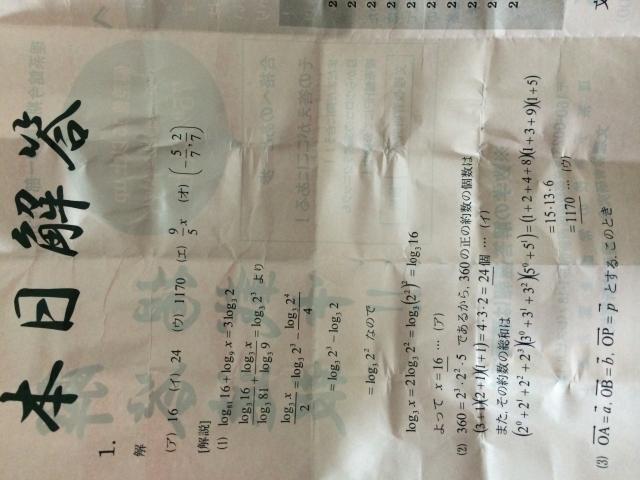 本日解答
1.
解
(ア) 16 (イ) 24 (ウ) 1170 (エ) 9/5 x (オ) (-5/7, 2/7)
[解説]
(1) log₈₁16+log₉x=3log₃2
log₃16/log₃81+log₃x/log₃9=log₃2³ より
log₃x/2=log₃2³-log₃2⁴/4
=log₃2³-log₃2
=log₃2² なので
log₃x=2log₃2²=log₃(2²)²=log₃16
よって x=16 … (ア)
(2) 360=2³・2²・5 であるから, 360の正の約数の個数は
(3+1)(2+1)(1+1)=4・3・2=24個 … (イ)
また, その約数の総和は
(2⁰+2¹+2²+2³)(3⁰+3¹+3²)(5⁰+5¹)=(1+2+4+8)(1+3+9)(1+5)
=15・13・6
=1170 … (ウ)
(3) OA=a, OB=b, OP=p とする. このとき